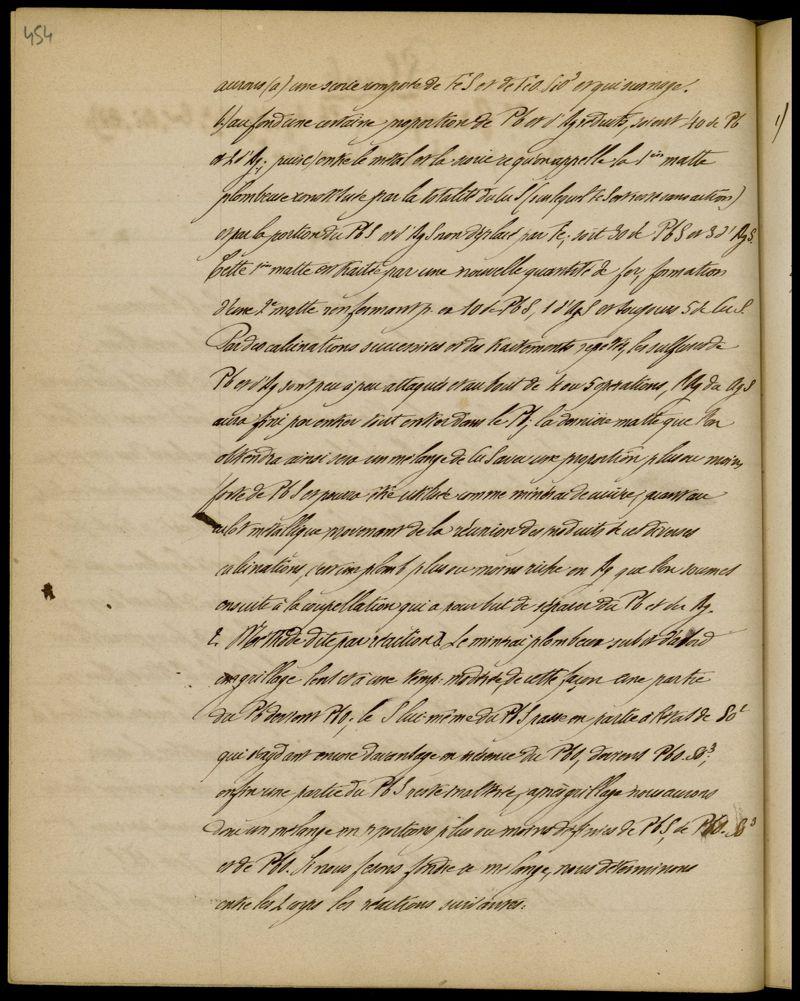 454
aurons (a) une scorie composée de FeS et de FeO, SiO³ et qui surnage.
b) au fond une certaine proportion de Pb et d'Ag réduits, soient 40 de Pb
et 2 d'Ag; puis c) entre le métal et la scorie ce qu'on appelle la 1ère matte
plombeuse constituée par la totalité du CuS (sur lequel le fer reste sans action)
et par la portion du PbS et d'AgS non déplacé par Fe; soit 30 de PbS et 3 d'AgS.
Cette 1ère matte est traitée par une nouvelle quantité de fer, formation
d'une 2e matte renfermant p. ex 10 de PbS, 1 d'AgS et toujours 5 de CuS.
Par des calcinations successives et des traitements répétés, les sulfures de
Pb et d'Ag sont peu à peu attaqués et au bout de 4 ou 5 opérations, l'Ag du AgS
aura fini par entrer tout entier dans le Pb; la dernière matte que l'on
obtiendra ainsi sera un mélange de CuS avec une proportion plus ou moins
forte de PbS et pourra être utilisée comme minerai de cuivre; quant au
culot métallique provenant de la réunion des produits de ces diverses
calcinations, c'est un plomb plus ou moins riche en Ag que l'on soumet
ensuite à la coupellation qui a pour but de séparer du Pb et du Ag.
2. Méthode dite par réaction. Le minerai plombeux subit d'abord
un grillage lent et à une temp. modérée, de cette façon une partie
du Pb devient PbO, le S lui-même du PbS passe en partie à l'état de SO²
qui s'oxydant encore davantage en présence du PbO, devient PbO. SO³;
enfin une partie du PbS reste inaltérée, après grillage nous aurons
donc un mélange en proportions plus ou moins définies de PbS, de PbO. SO³
et de PbO. Si nous faisons fondre ce mélange, nous déterminons
entre les corps les réactions suivantes: